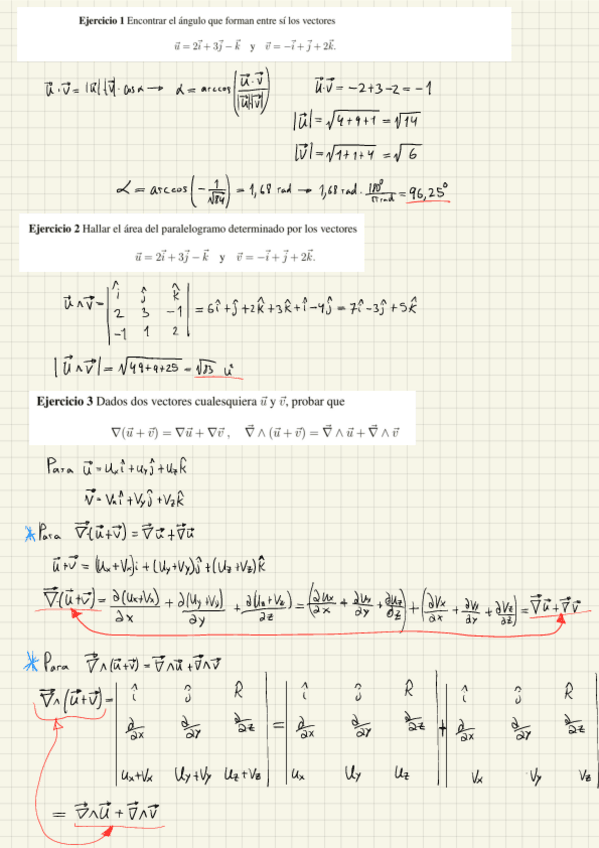 Ejercicio 1 Encontrar el ángulo que forman entre sí los vectores
u⃗ = 2i⃗ + 3j⃗ − k⃗ y v⃗ = −i⃗ + j⃗ + 2k⃗.
u⃗·v⃗ = |u⃗||v⃗|·cos α → α = arccos(u⃗·v⃗ / |u⃗||v⃗|)
u⃗·v⃗ = −2+3−2 = −1
|u⃗| = √(4+9+1) = √14
|v⃗| = √(1+1+4) = √6
α = arccos(−1/√84) = 1,68 rad → 1,68 rad · 180°/π rad = 96,25°
Ejercicio 2 Hallar el área del paralelogramo determinado por los vectores
u⃗ = 2i⃗ + 3j⃗ − k⃗ y v⃗ = −i⃗ + j⃗ + 2k⃗.
u⃗∧v⃗ = | î ĵ k̂ ; 2 3 −1 ; −1 1 2 | = 6î+ĵ+2k̂+3k̂+î−4ĵ = 7î−3ĵ+5k̂
|u⃗∧v⃗| = √(49+9+25) = √83 u²
Ejercicio 3 Dados dos vectores cualesquiera u⃗ y v⃗, probar que
∇(u⃗ + v⃗) = ∇u⃗ + ∇v⃗ , ∇⃗ ∧ (u⃗ + v⃗) = ∇⃗ ∧ u⃗ + ∇⃗ ∧ v⃗
Para u⃗ = uxî + uyĵ + uzk̂
v⃗ = vxî + vyĵ + vzk̂
* Para ∇⃗(u⃗+v⃗) = ∇⃗u⃗ + ∇⃗u⃗
u⃗+v⃗ = (ux+vx)i + (uy+vy)ĵ + (uz+vz)k̂
∇⃗(u⃗+v⃗) = ∂(ux+vx)/∂x + ∂(uy+vy)/∂y + ∂(uz+vz)/∂z = (∂ux/∂x + ∂uy/∂y + ∂uz/∂z) + (∂vx/∂x + ∂vy/∂y + ∂vz/∂z) = ∇⃗u⃗ + ∇⃗v⃗
* Para ∇⃗∧(u⃗+v⃗) = ∇⃗∧u⃗ + ∇⃗∧v⃗
∇⃗∧(u⃗+v⃗) = | î ĵ k̂ ; ∂/∂x ∂/∂y ∂/∂z ; ux+vx uy+vy uz+vz | = | î ĵ k̂ ; ∂/∂x ∂/∂y ∂/∂z ; ux uy uz | + | î ĵ k̂ ; ∂/∂x ∂/∂y ∂/∂z ; vx vy vz |
= ∇⃗∧u⃗ + ∇⃗∧v⃗